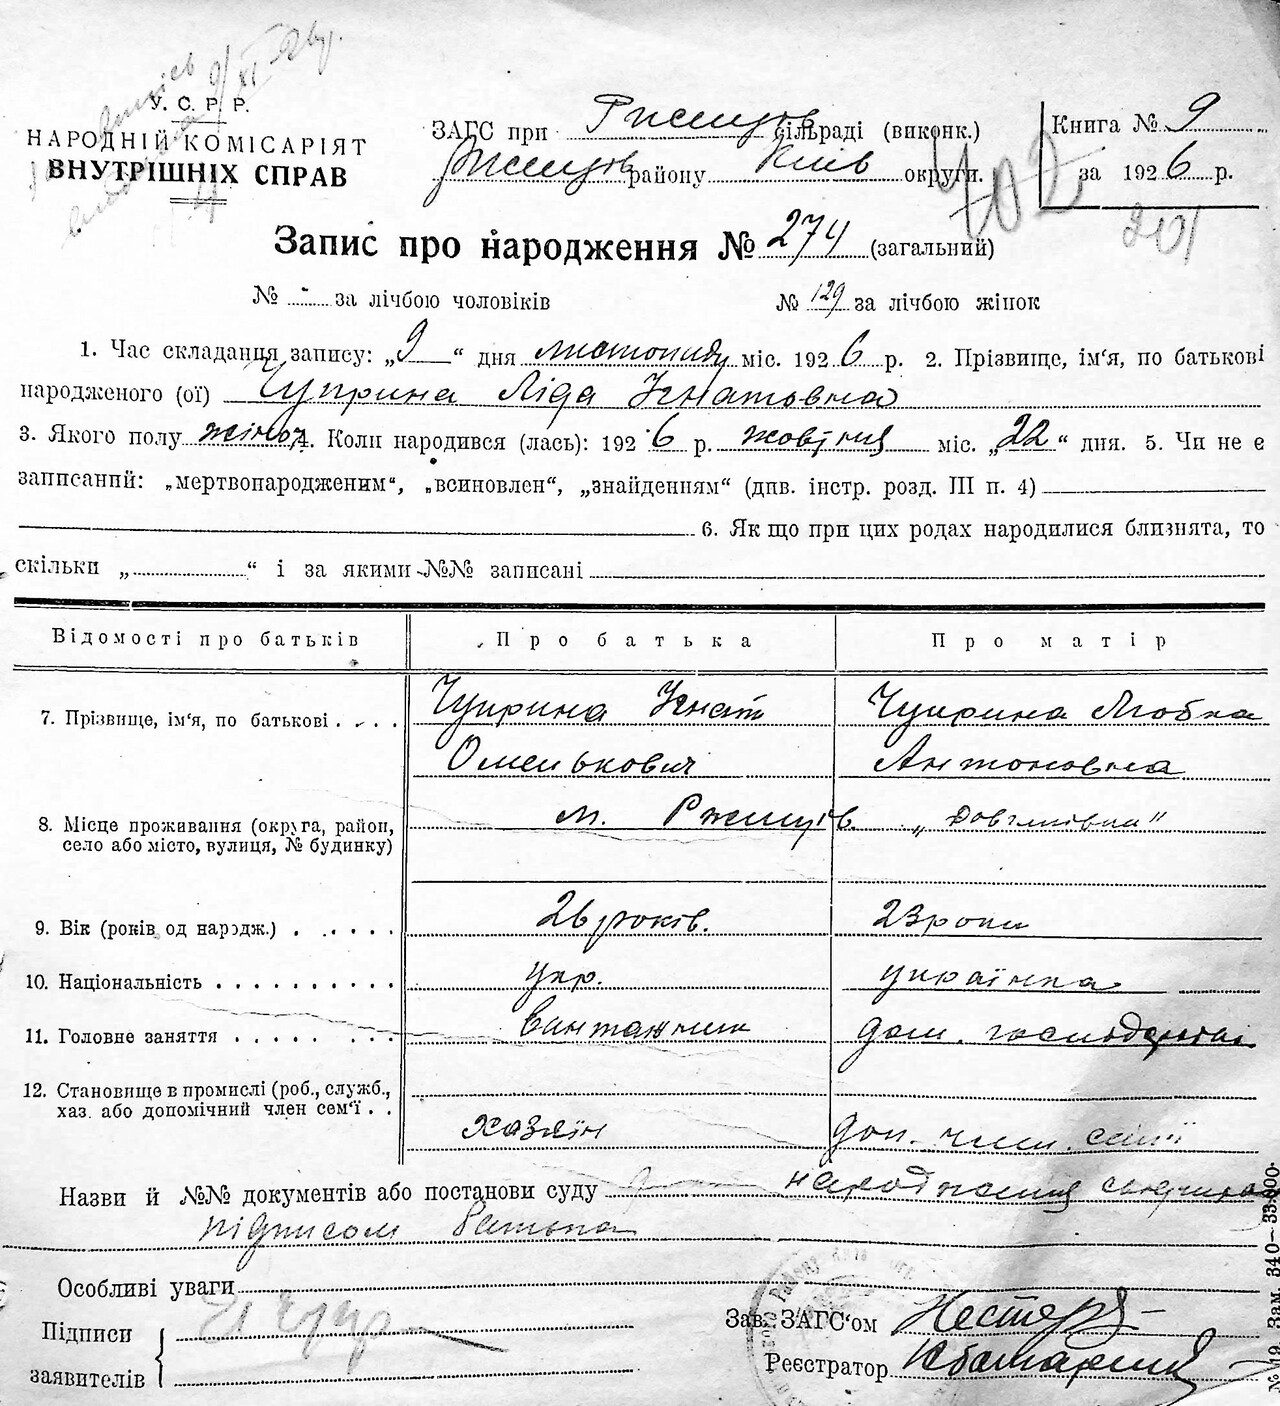 У. С. Р. Р.
НАРОДНІЙ КОМІСАРІЯТ
ВНУТРІШНІХ СПРАВ
ЗАГС при Ржищів сільраді (виконк.)
Ржищів району Київ округи.
Книга № 9
за 1926 р.
402
201
Запис про народження № 274 (загальний)
№ - за лічбою чоловіків № 129 за лічбою жінок
1. Час складання запису: „9“ дня листопаду міс. 1926 р. 2. Прізвище, ім‘я, по батькові
народженого (ої) Чуприна Ліда Ігнатовна
3. Якого полу жіноч. 4. Коли народився (лась): 1926 р. жовтня міс. „22“ дня. 5. Чи не є
записаний: „мертвонародженим“, „всиновлен“, „знайденням“ (див. інстр. розд. III п. 4)
6. Як що при цих родах народилися близнята, то
скільки „ “ і за якими №№ записані
Відомості про батьків Про батька Про матір
7. Прізвище, ім‘я, по батькові Чуприна Ігнат Чуприна Любка
Омелькович Антоновна
8. Місце проживання (округа, район, м. Ржищів.
село або місто, вулиця, № будинку)
9. Вік (років од народж.) 26 років. 23 роки
10. Національність укр. українка
11. Головне заняття вантажник дом. господарка
12. Становище в промислі (роб., служб.,
хаз. або допомічний член сем‘ї хазяїн доп. член. сем'ї
Назви й №№ документів або постанови суду народження
підписом батька
Особливі уваги
Підписи
заявителів
Зав. ЗАГС‘ом
Реєстратор
№ 19. Зам. 340—33.000.